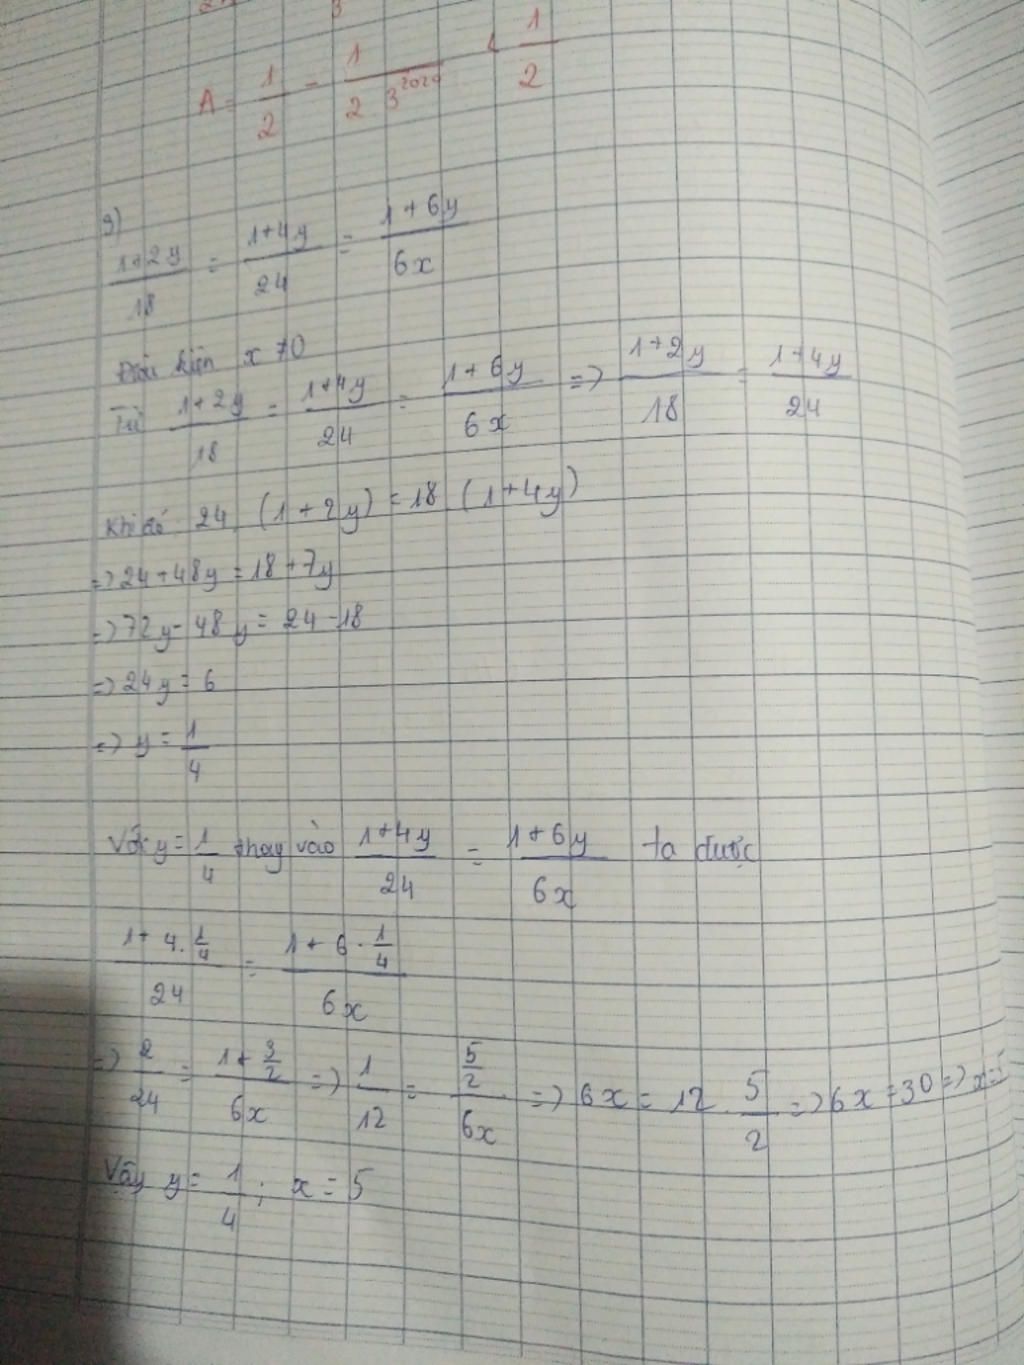 A = 1/2 - 1/(2 3^2020) < 1/2
9)
(1+2y)/18 = (1+4y)/24 = (1+6y)/6x
Điều kiện x ≠ 0
Từ (1+2y)/18 = (1+4y)/24 = (1+6y)/6x => (1+2y)/18 = (1+4y)/24
Khi đó 24 (1+2y) = 18 (1+4y)
=> 24+48y = 18+7y
=> 72y - 48y = 24 - 18
=> 24y = 6
=> y = 1/4
Với y = 1/4 thay vào (1+4y)/24 = (1+6y)/6x ta được
(1+4.1/4)/24 = (1+6.1/4)/6x
=> 2/24 = (1+3/2)/6x => 1/12 = (5/2)/6x => 6x = 12.5/2 => 6x = 30 => x =
Vậy y = 1/4; x = 5